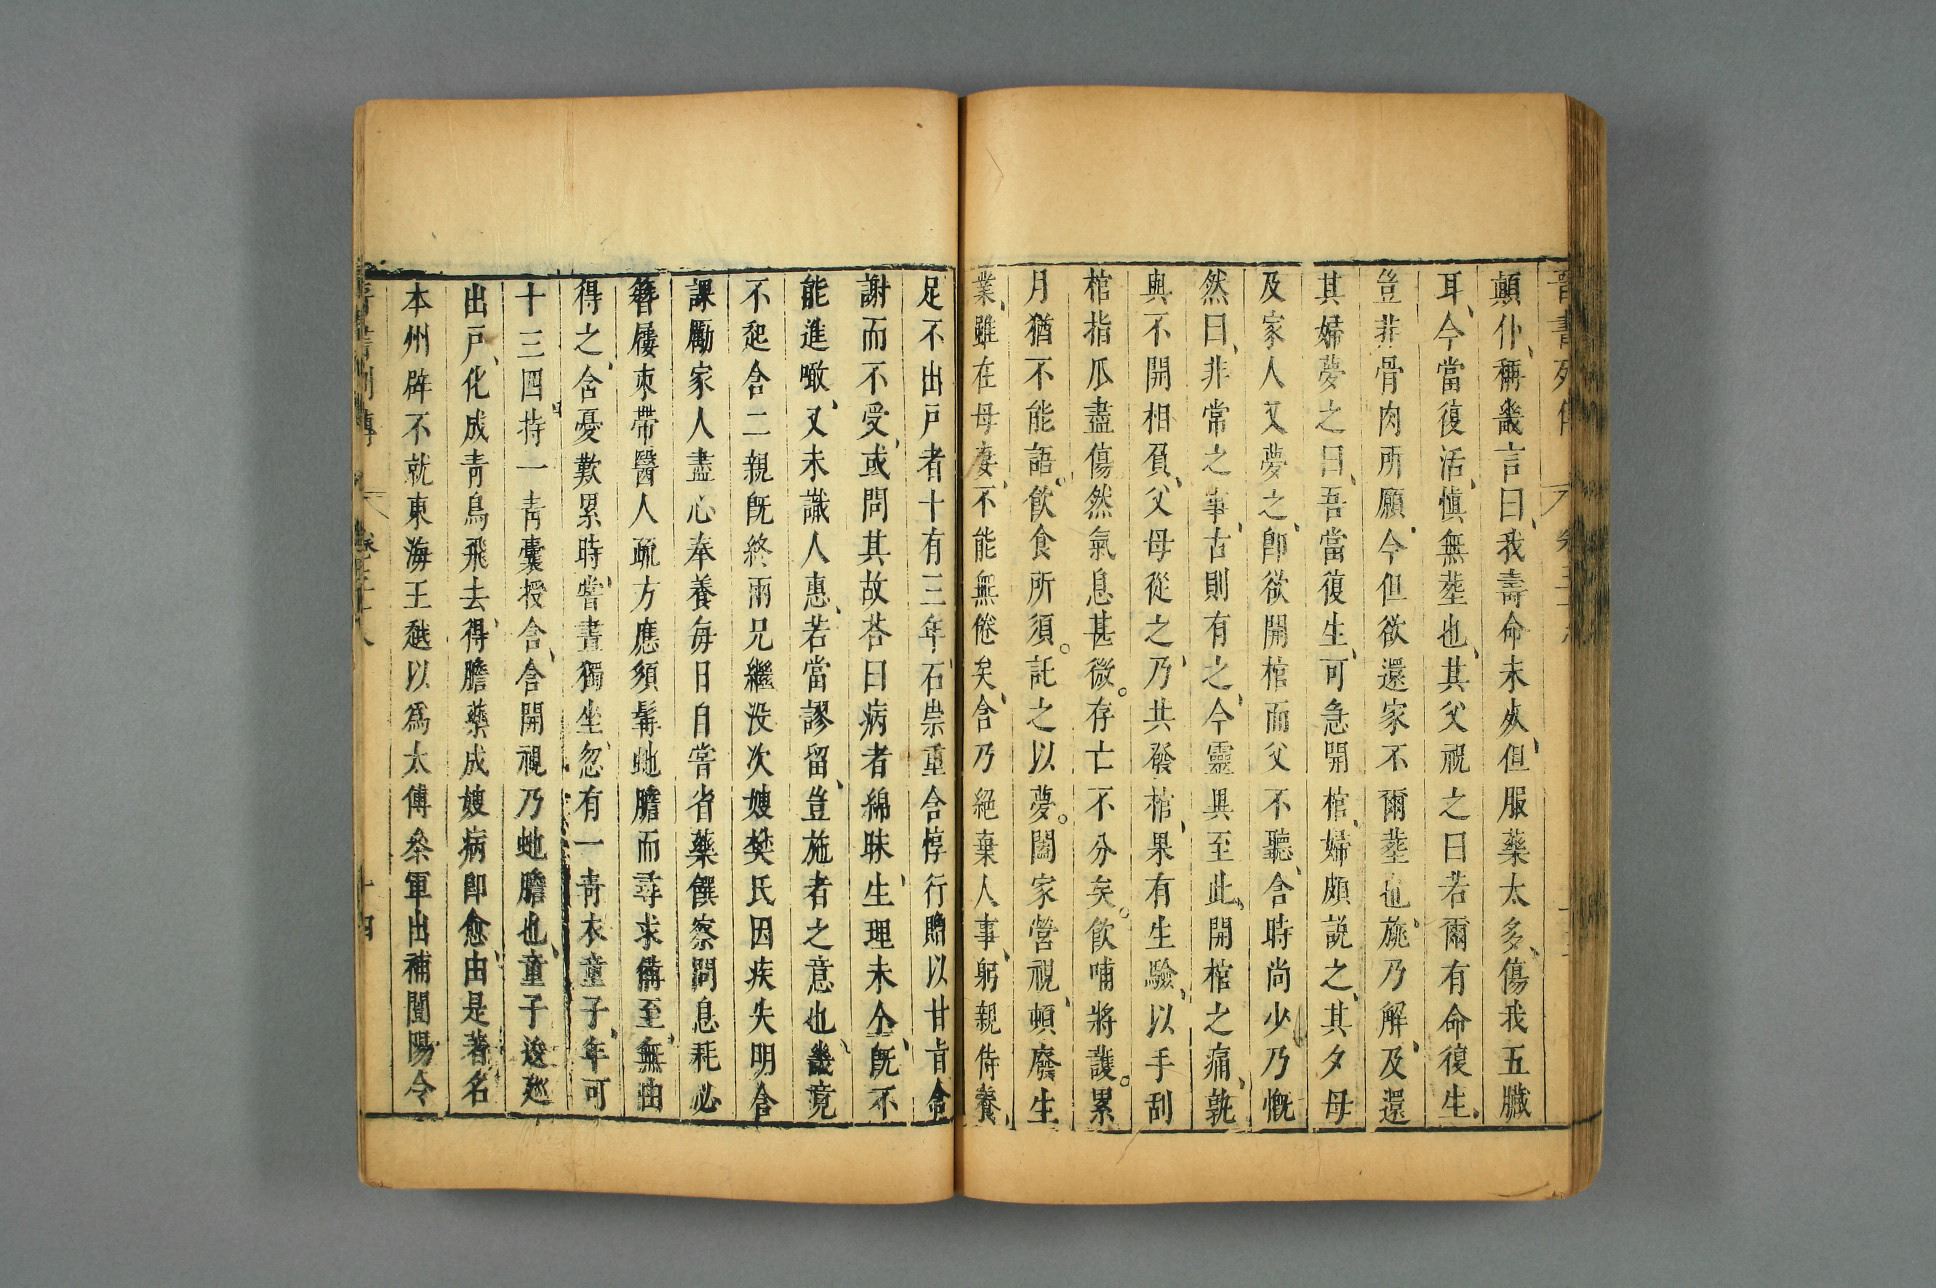 晉書列傳 卷五十八
顛仆、稱畿言曰、我壽命未死、但服藥太多、傷我五臟
耳、今當復活、愼無塟也、其父祝之曰若爾有命復生、
豈非骨肉所願、今但欲還家不爾塟也、旐乃解、及還
其婦夢之曰、吾當復生、可急開棺、婦頗説之、其夕母
及家人又夢之、卽欲開棺而父不聽、含時尚少乃慨
然曰、非常之事、古則有之、今靈異至此、開棺之痛、孰
與不開相負、父母從之、乃共發棺、果有生驗、以手刮
棺指爪盡傷然氣息甚微。存亡不分矣。飲哺將護。累
月猶不能語。飲食所須。託之以夢。闔家營視、頓廢生
業、雖在母妻、不能無倦矣、含乃絕棄人事、躬親侍養、
足不出戶者十有三年、石崇重含惇行贈以甘旨含
謝而不受、或問其故荅曰病者綿昧、生理未全、旣不
能進噉、又未識人惠、若當謬留、豈施者之意也、畿竟
不起含二親旣終兩兄繼没次嫂樊氏因疾失明含
課勵家人盡心奉養每日自嘗省藥饌察問息耗必
簪屨束帶醫人疏方應須髯虵膽而尋求備至、無由
得之、含憂歎累時、嘗晝獨坐、忽有一青衣童子、年可
十三四持一青囊授含、含開視乃虵膽也、童子逡廵
出戶、化成青鳥飛去、得膽藥成嫂病卽愈、由是著名
本州辟不就東海王越以爲太傅叅軍出補闓陽令
晉書列傳 卷五十八 十四